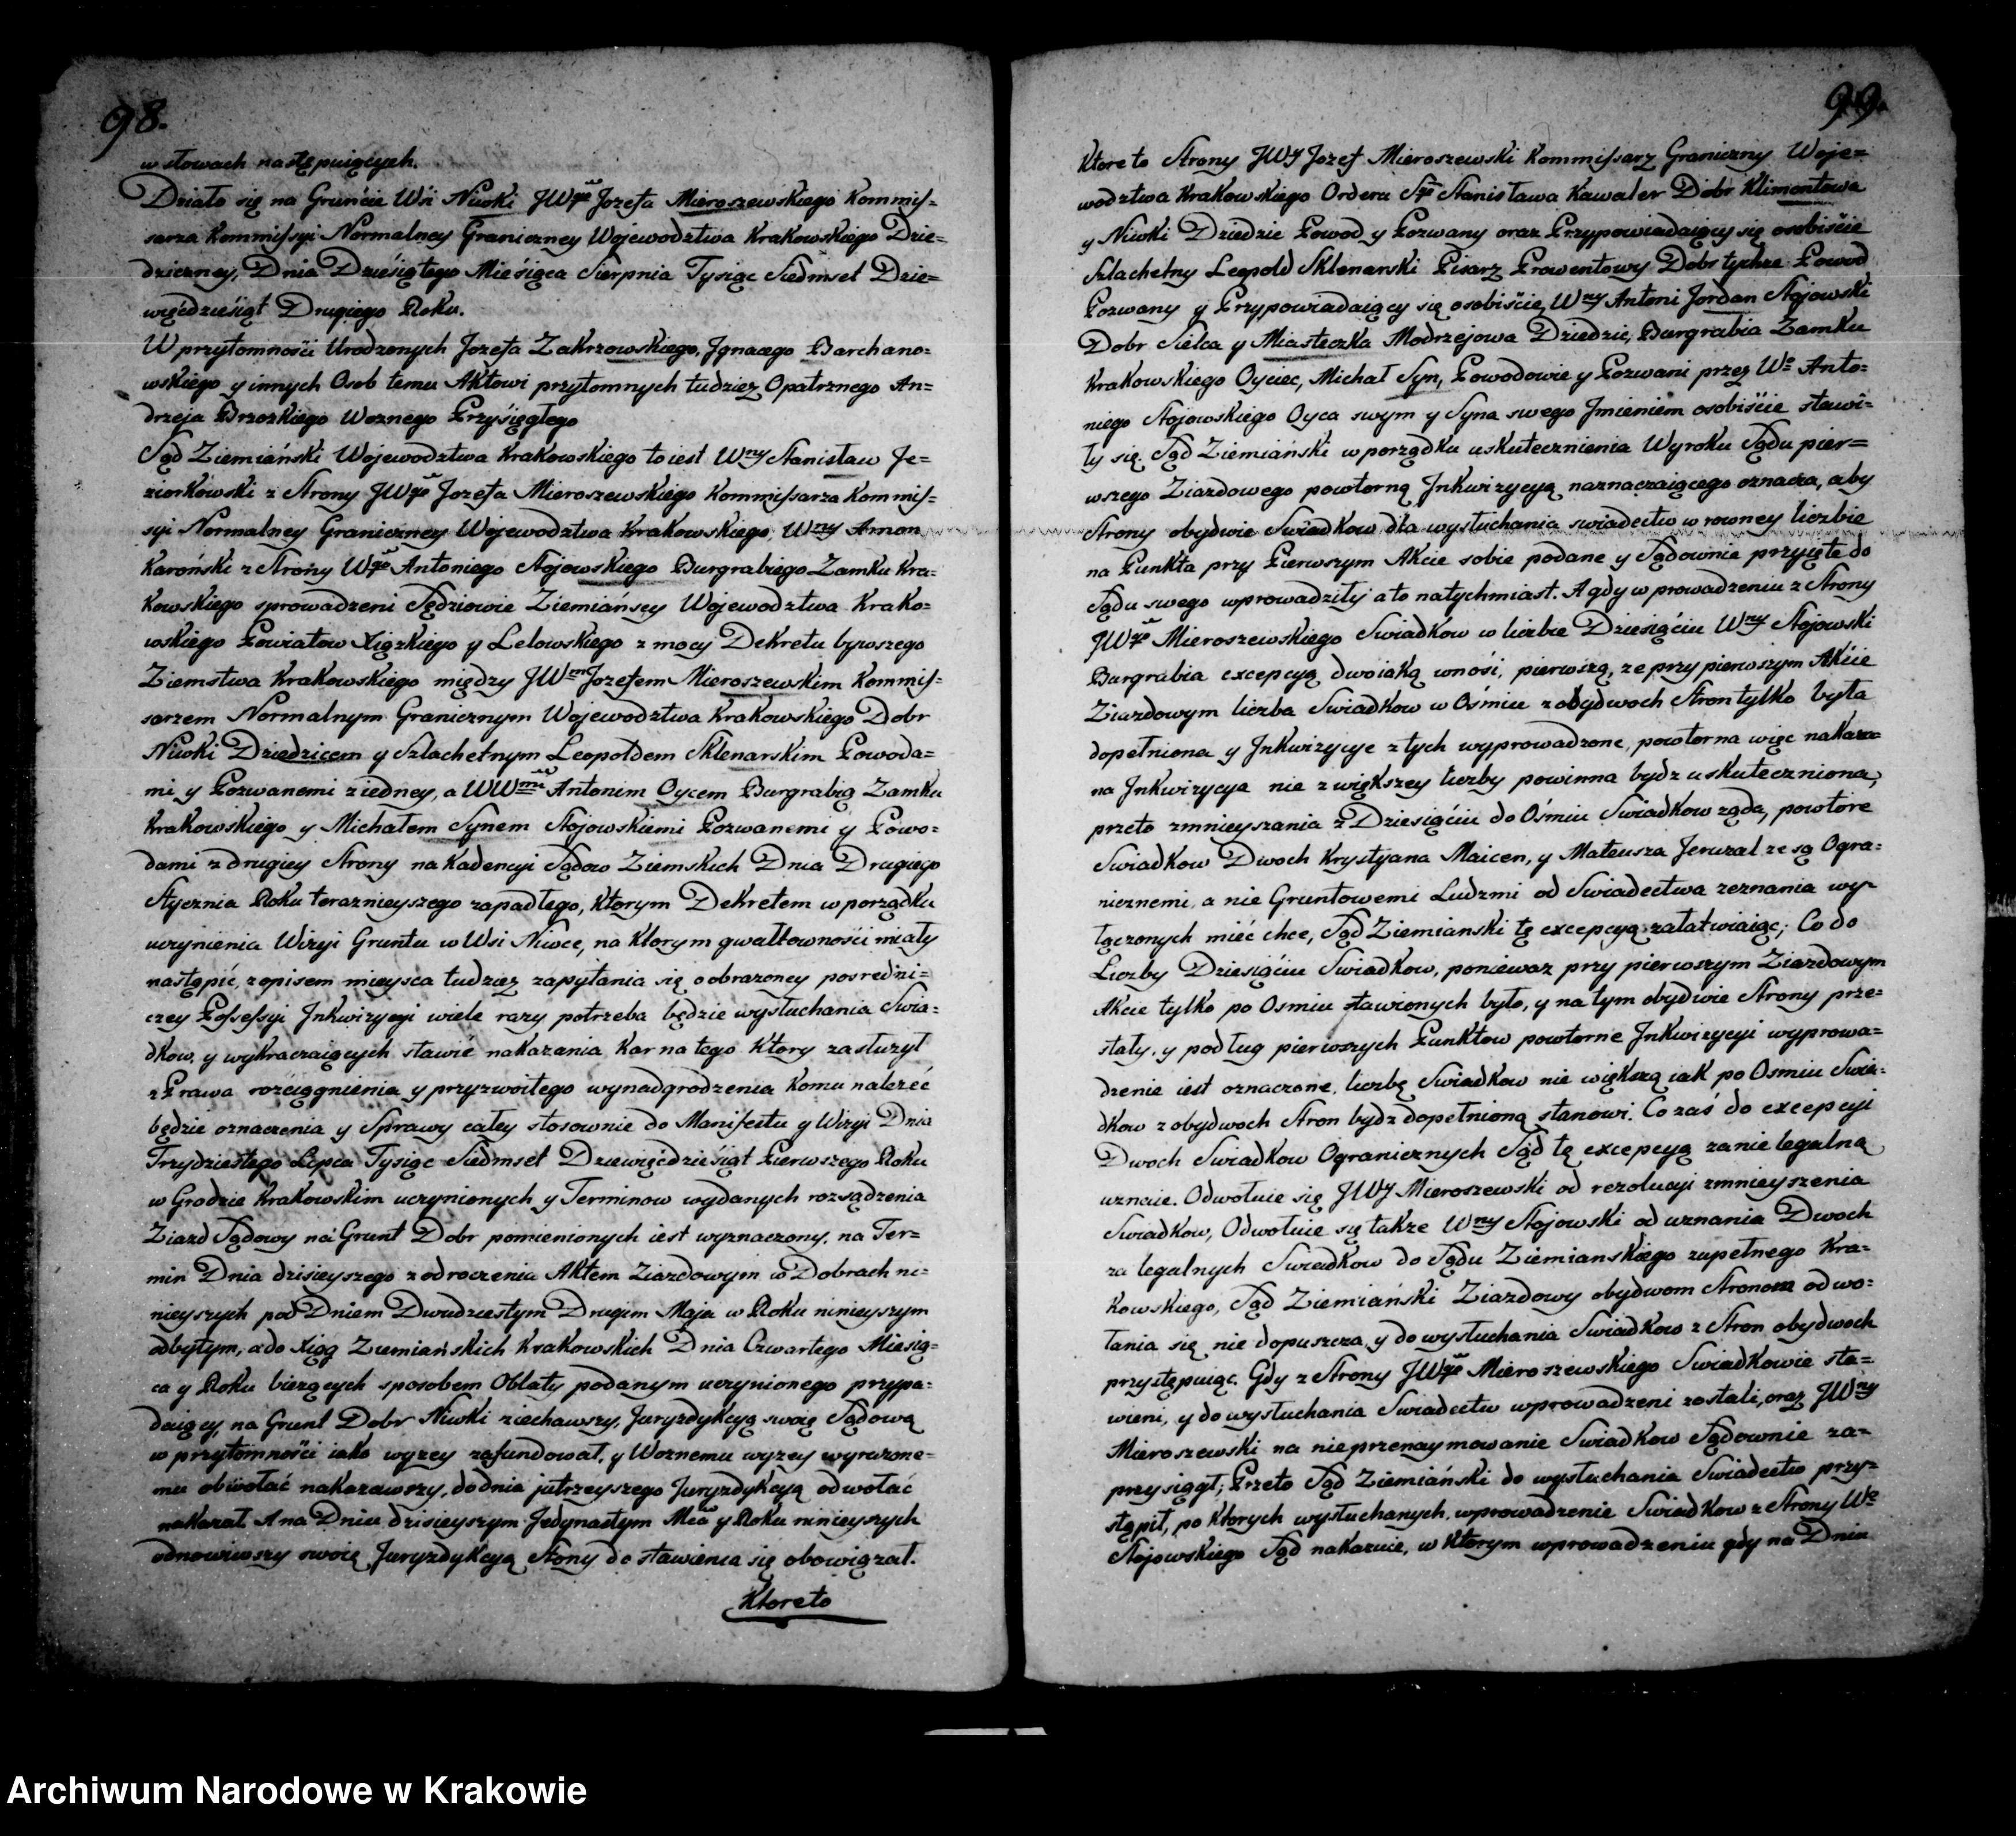 98.
w słowach następuiących.
Działo się na Gruńcie Wśi Niwki JWgo Jozefa Mieroszewskiego Kommis=
sarza Kommissyi Normalney Graniczney Wojewodztwa Krakowskiego Dzie=
dziczney, Dnia Dzieśiątego Mieśiąca Sierpnia Tysiąc Siedmset Dzie=
więćdzieśiąt Drugiego Roku.
W przytomnośći Urodzonych Jozefa Zakrzowskiego, Jgnacego Barchano=
wskiego y innych Osob temu Aktowi przytomnych tudziez Opatrznego An=
drzeja Brzozkiego Woznego Przyśięgłego
Sąd Ziemiański Wojewodztwa Krakowskiego to iest Wny Stanisław Je=
ziorkowski z Strony JWgo Jozefa Mieroszewskiego Kommissarza Kommis=
syi Normalney Graniczney Wojewodztwa Krakowskiego, Wny Amon
Karoński z Strony Wgo Antoniego Stojowskiego Burgrabiego Zamku Kra=
kowskiego sprowadzeni Sędziowie Ziemiańscy Wojewodztwa Krako=
wskiego Powiatow Xiązkiego y Lelowskiego z mocy Dekretu bywszego
Ziemstwa Krakowskiego między JWm Jozefem Mieroszewskim Kommis=
sarzem Normalnym Granicznym Wojewodztwa Krakowskiego Dobr
Niwki Dziedzicem y Szlachetnym Leopoldem Sklenarskim Powoda=
mi y Pozwanemi z iedney, a WWmi Antonim Oycem Burgrabią Zamku
Krakowskiego y Michałem Synem Stojowskiemi Pozwanemi y Powo=
dami z drugiey Strony na Kadencyi Sądow Ziemskich Dnia Drugiego
Stycznia Roku terazniejszego zapadłego, Ktorym Dekretem w porządku
uczynienia Wizyi Gruntu w Wsi Niwce, na ktorym gwałtownośći miały
nastąpić, z opisem mieysca tudziez zapytania się o obrazoney posredni=
czey Possessyi Jnkwizycyi wiele razy potrzeba będzie wysłuchania Swia=
dkow, y wykraczaiących stawić nakazania Kar na tego Ktory zasłuzył
z Prawa rozciągnienia y przyzwoitego wynadgrodzenia komu nalezeć
będzie oznaczenia y Sprawy całey stosownie do Manifestu y Wizyi Dnia
Trzydziestego Lipca Tysiąc Siedmset Dziewięćdzieśiąt Pierwszego Roku
w Grodzie Krakowskim uczynionych y Terminow wydanych rozsądzenia
Ziazd Sądowy na Grunt Dobr pomienionych iest wyznaczony, na Ter=
min Dnia dzisieyszego z odroczenia Aktem Ziazdowym w Dobrach ni=
nieyszych pod Dniem Dwudziestym Drugim Maja w Roku ninieyszym
odbytym, a do Xiąg Ziemiańskich Krakowskich Dnia Czwartego Miesią=
ca y Roku bieżących sposobem Oblaty podanym uczynionego przypa=
daiący, na Grunt Dobr Niwki ziechawszy, Juryzdykcyą swoię Sądową
w przytomnośći iako wyzey zafundował, y Woznemu wyzey wyrazone=
mu obwołać nakazawszy, do dnia jutrzeyszego Juryzdykcyą odwołać
nakazał. A na Dniu dzisieyszym Jedynastym Mca y Roku ninieyszych
odnowiwszy swoię Juryzdykcyą Stony do stawienia się obowiązał.
Ktoreto
99.
Ktore to Strony JWJ Jozef Mieroszewski Kommissarz Graniczny Woje=
wodztwa Krakowskiego Orderu Sgo Stanisława Kawaler Dobr Klimontowa
y Niwki Dziedzic Powod y Pozwany oraz Przypowiadaiący się osobiśćie
Szlachetny Leopold Sklenarski Pisarz Prowentowy Dobr tychze Powod
Pozwany y Przypowiadaiący się osobiśćie, Wny Antoni Jordan Stojowski
Dobr Sielca y Miasteczka Modrzejowa Dziedzic, Burgrabia Zamku
Krakowskiego Oyciec, Michał Syn, Powodowie y Pozwani przez Wo Anto=
niego Stojowskiego Oyca swym y Syna swego Jmieniem osobiśćie stawi=
ły się. Sąd Ziemiański w porządku uskutecznienia Wyroku Sądu pier=
wszego Ziazdowego powtorną Jnkwizycyą naznaczaiącego oznacza, aby
Strony obydwie Swiadkow dla wysłuchania swiadectw w rowney liczbie
na Punkta przy Pierwszym Akcie sobie podane y Sądownie przyięte do
Sądu swego wprowadziły a to natychmiast. A gdy w prowadzeniu z Strony
JWgo Mieroszewskiego Swiadkow w liczbie Dziesięćiu Wny Stojowski
Burgrabia excepcyą dwoiaką wnośi, pierwszą, ze przy pierwszym Akcie
Ziazdowym liczba Swiadkow w Ośmiu z obydwoch Stron tylko była
dopełniona y Jnkwizycye z tych wyprowadzone, powtorna więc nakaza=
na Jnkwizycya nie z większey liczby powinna bydz uskuteczniona,
przeto zmnieyszania z Dziesięćiu do Ośmiu Swiadkow ząda, powtore
Swiadkow Dwoch Krystyana Maicen, y Mateusza Jeruzal ze są Ogra=
nicznemi, a nie Gruntowemi Ludzmi od Swiadectwa zeznania wy=
łączonych mieć chce, Sąd Ziemianski tę excepcyą załatwiaiąc; Co do
Liczby Dziesięćiu Swiadkow, poniewaz przy pierwszym Ziazdowym
Akcie tylko po Osmiu stawionych było, y na tym obydwie Strony prze=
stały, y podług pierwszych Punktow powtorne Jnkwizycyi wyprowa=
dzenie iest oznaczone, liczbę Swiadkow nie większą iak po Osmiu Swia=
dkow z obydwoch Stron bydz dopełnioną stanowi. Co zaś do excepcyi
Dwoch Swiadkow Ogranicznych Sąd tę excepcyą za nielegalną
uznaie. Odwołuie się JWJ Mieroszewski od rezolucyi zmnieyszenia
Swiadkow, Odwołuie się takze Wny Stojowski od uznania Dwoch
za legalnych Swiadkow do Sądu Ziemianskiego zupełnego Kra=
kowskiego, Sąd Ziemiański Ziazdowy obydwom Stronom odwo=
łania się nie dopuszcza, y do wysłuchania Swiadkow z Stron obydwoch
przystępuiąc. Gdy z Strony JWgo Mieroszewskiego Swiadkowie sta=
wieni, y do wysłuchania Swiadectw wprowadzeni zostali, oraz JWny
Mieroszewski na nieprzenaymowanie Swiadkow Sądownie za=
przysiągł; Przeto Sąd Ziemiański do wysłuchania Swiadectw przy=
stąpił, po ktorych wysłuchanych, wprowadzenie Swiadkow z Strony Wo
Stojowskiego Sąd nakazuie, w ktorym wprowadzeniu gdy na Dniu
Archiwum Narodowe w Krakowie